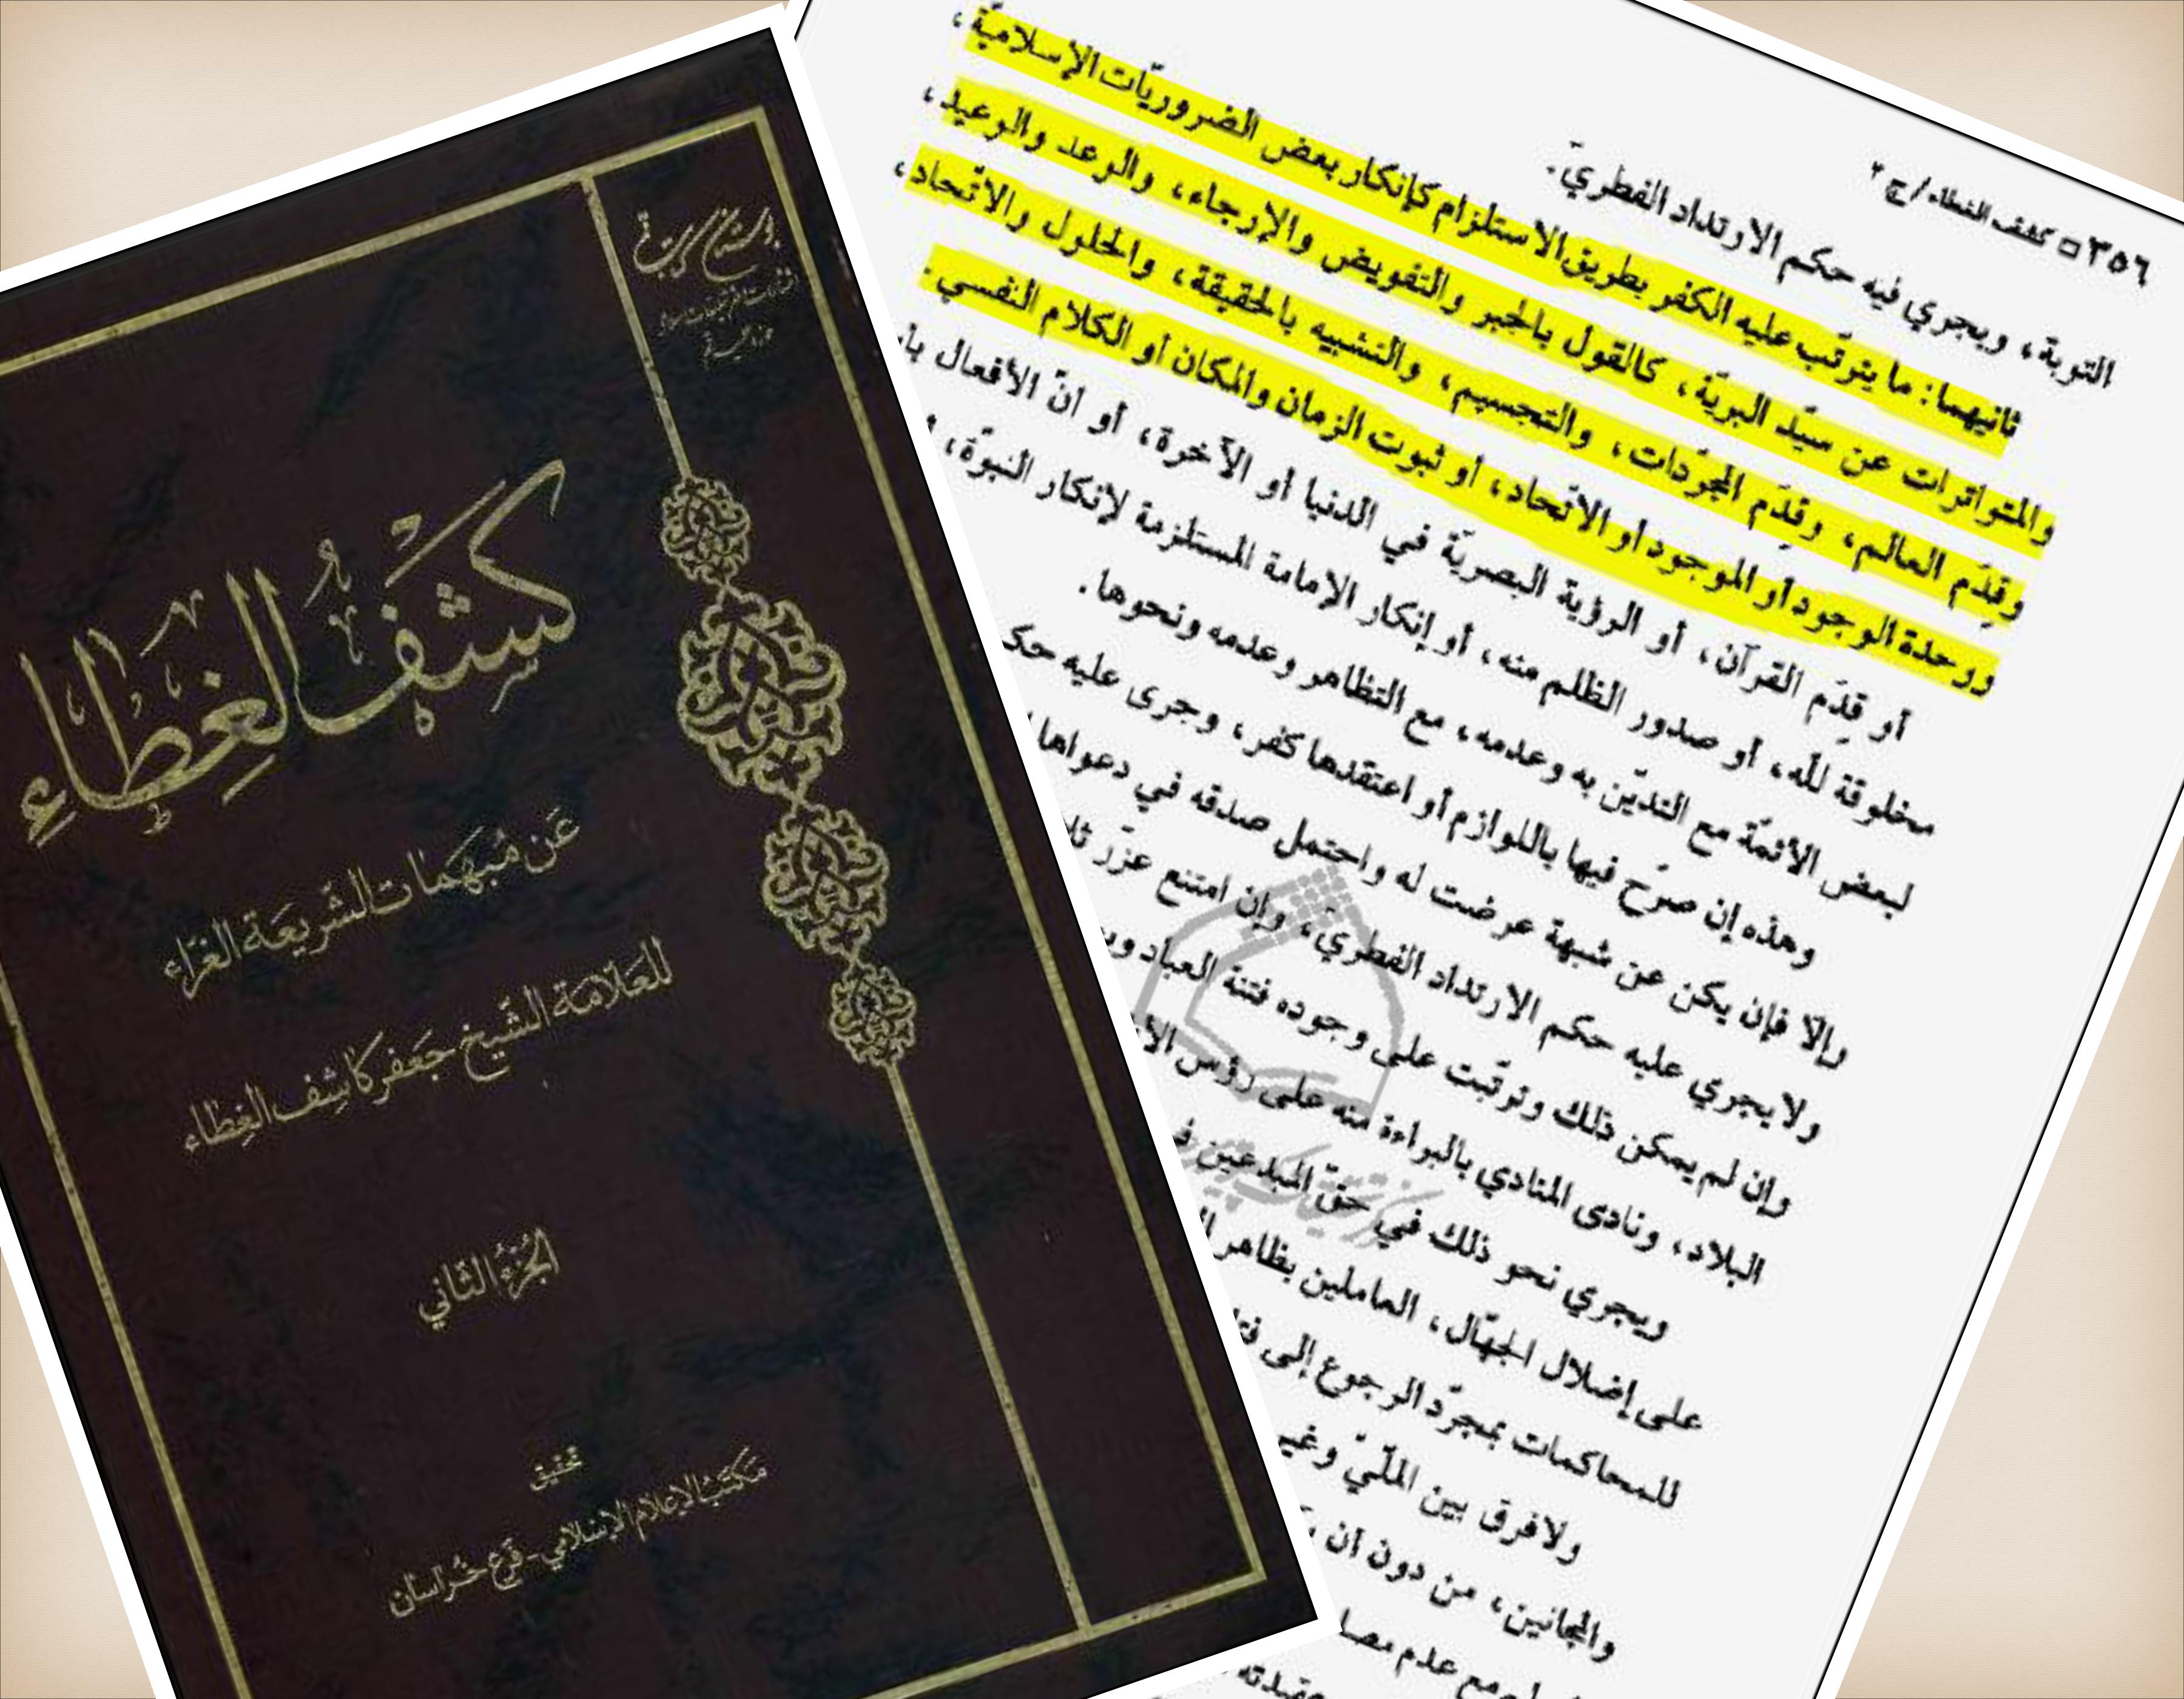 كشف الغطاء
عن مبهمات الشريعة الغراء
للعلامة الشيخ جعفر كاشف الغطاء
الجزء الثاني
تحقيق
مكتب الإعلام الإسلامي - فرع خراسان
٣٥٦ □ كشف الغطاء / ج ٢
التوبة، ويجري فيه حكم الارتداد الفطريّ.
ثانيهما: ما يترتّب عليه الكفر بطريق الاستلزام كإنكار بعض الضروريّات الإسلاميّة،
والمتواترات عن سيّد البريّة، كالقول بالجبر والتفويض والإرجاء، والوعد والوعيد،
وقِدَم العالم، وقِدَم المجرّدات، والتجسيم، والتشبيه بالحقيقة، والحلول والاتّحاد،
ووحدة الوجود أو الموجود أو الاتّحاد، أو ثبوت الزمان والمكان أو الكلام النفسي.
أو قِدَم القرآن، أو الرؤية البصريّة في الدنيا أو الآخرة، أو انّ الأفعال
مخلوقة للّه، أو صدور الظلم منه، أو إنكار الإمامة المستلزمة لإنكار النبوّة،
لبعض الأئمّة مع التديّن به وعدمه، مع التظاهر وعدمه ونحوها.
وهذه إن صرّح فيها باللوازم أو اعتقدها كفر، وجرى عليه
وإلّا فإن يكن عن شبهة عرضت له واحتمل صدقه في دعواها
ولا يجري عليه حكم الارتداد الفطريّ، وإن امتنع عزّر
وإن لم يمكن ذلك وترتّبت على وجوده فتنة العباد
البلاد، ونادى المنادي بالبراءة منه على رؤس
ويجري نحو ذلك في حقّ المبدعين
على إضلال الجهّال، العاملين بظاهر
للمحاكمات بمجرّد الرجوع إلى
ولا فرق بين الملّيّ وغير
والمجانين، من دون أن
مع عدم